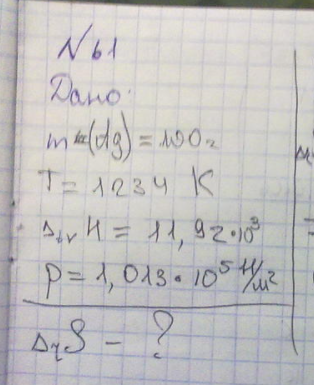 № 61
Дано:
m (Ag) = 100 г
T = 1234 K
Δtr H = 11,92·10³
p = 1,013·10⁵ Н/м²
ΔrS - ?